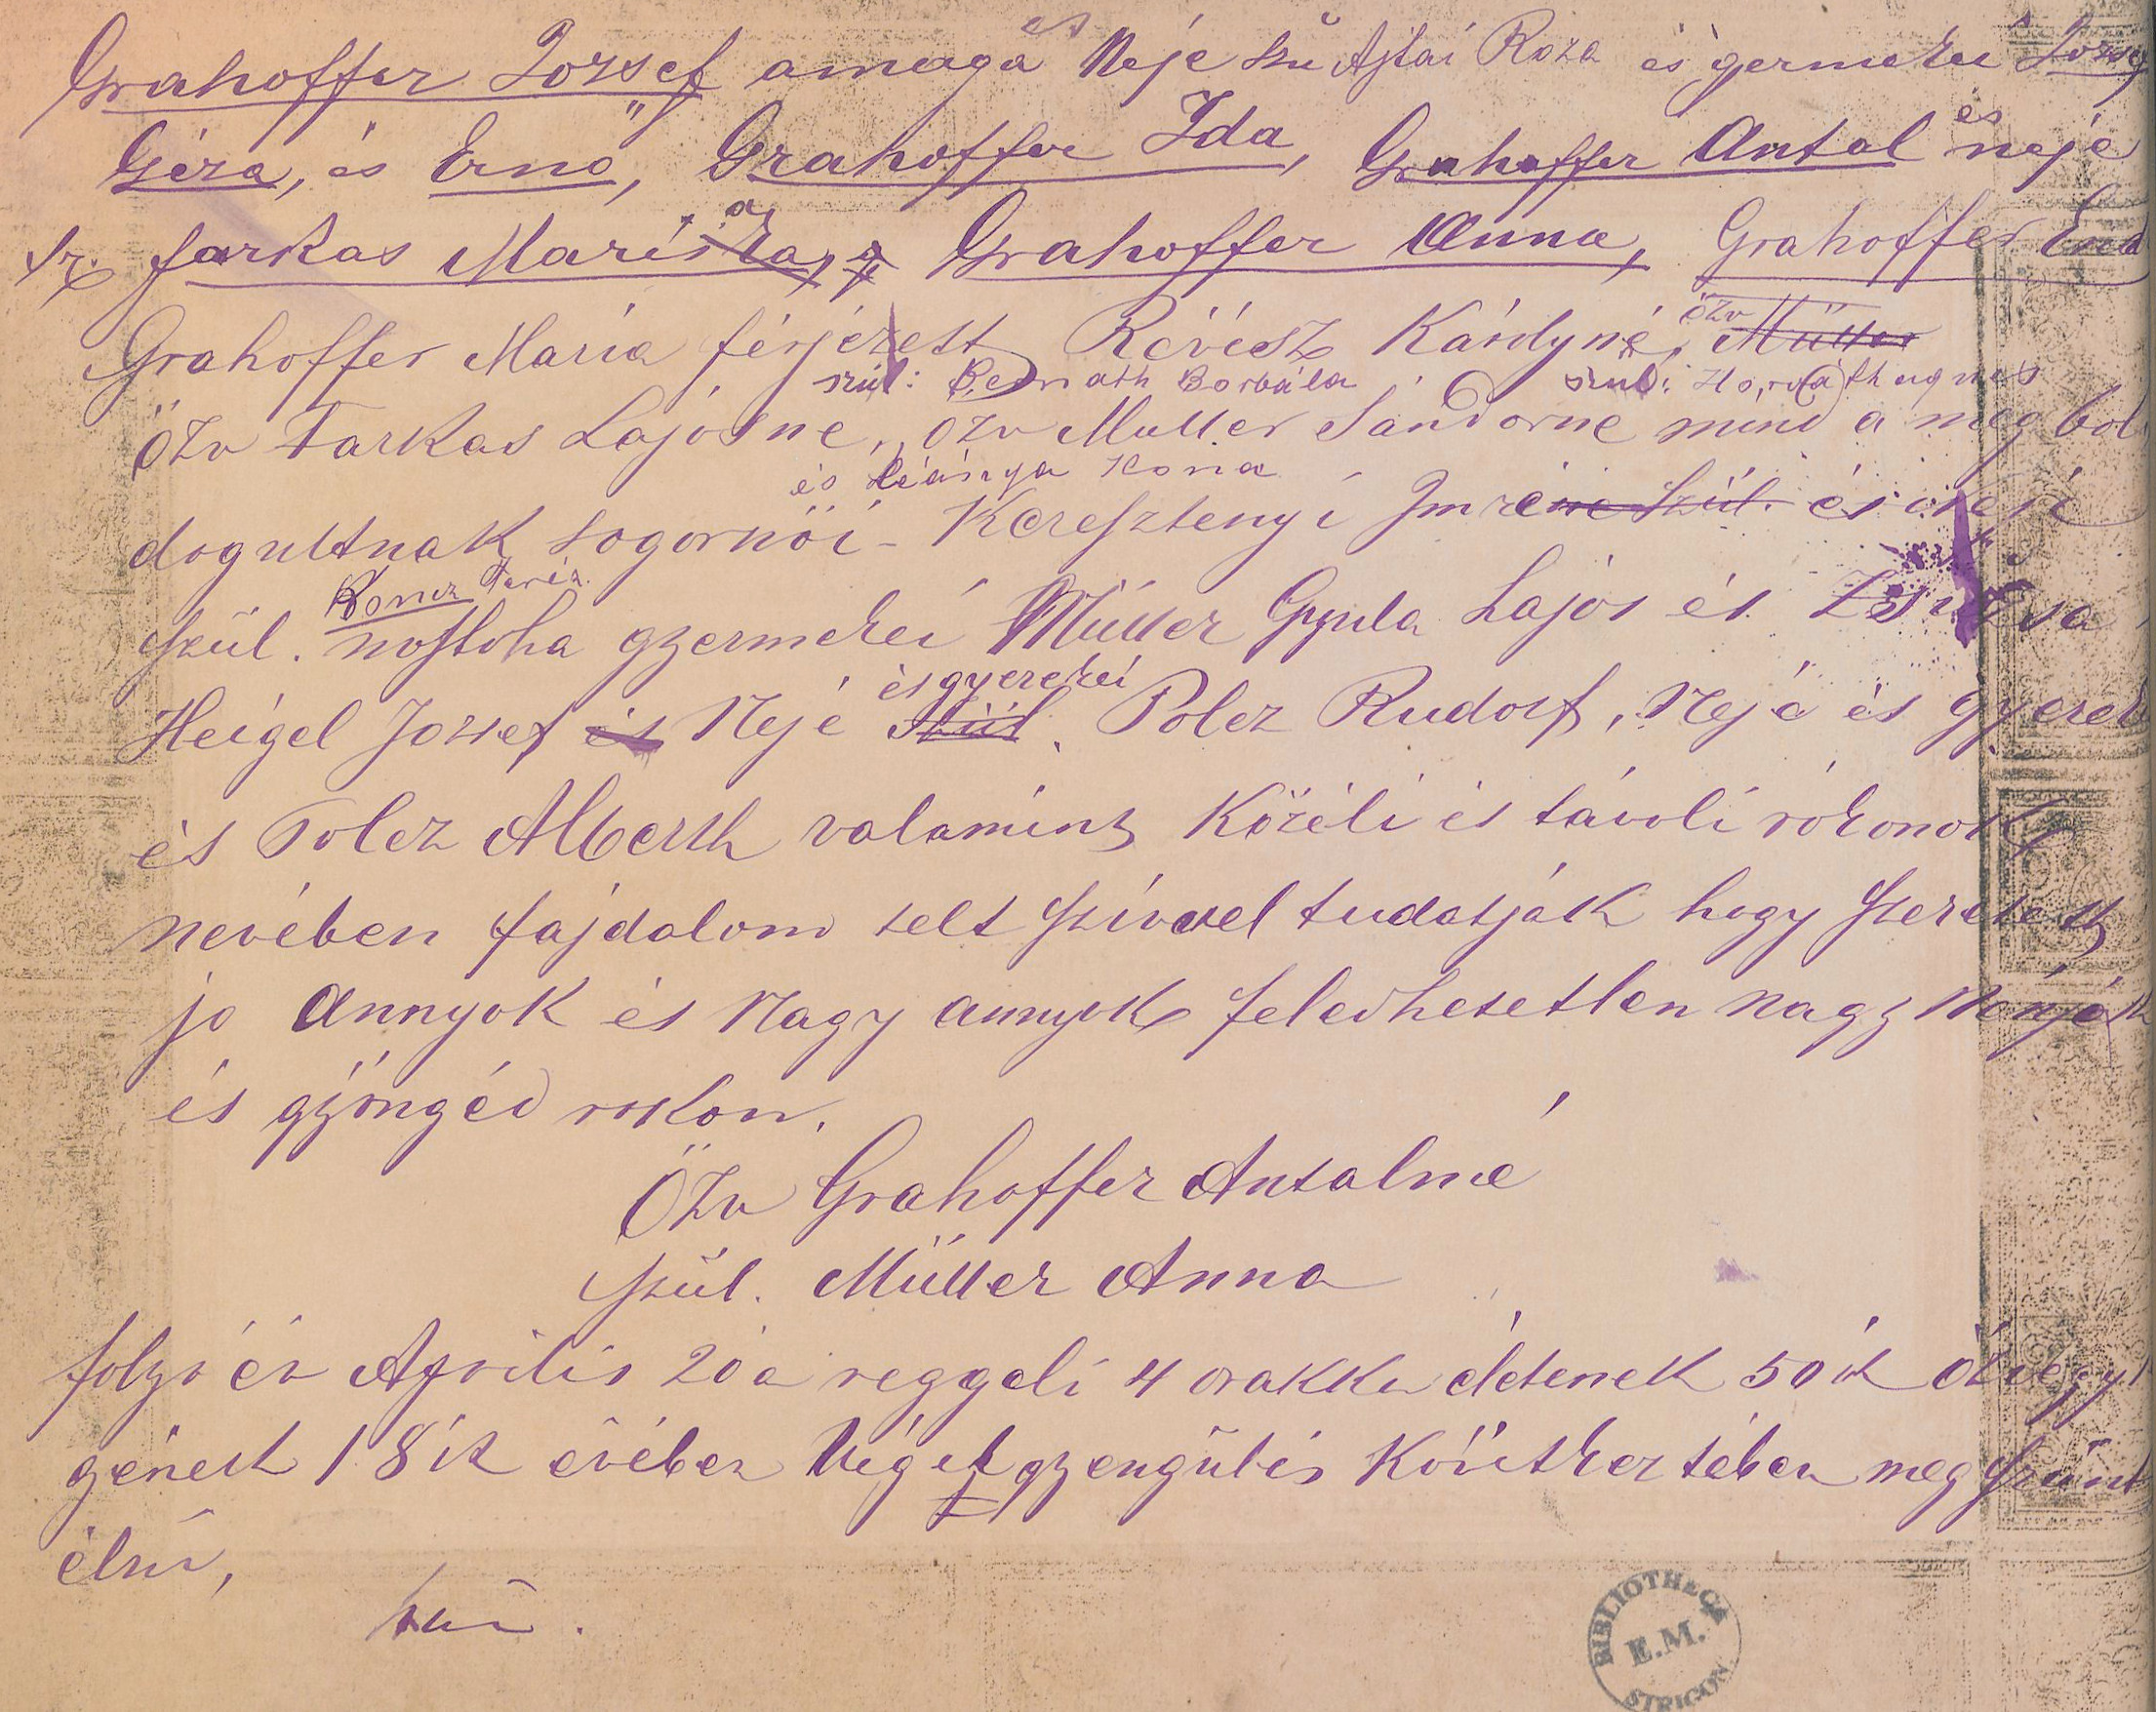 Grahoffer Jozsef a maga és Neje szü Ajtai Roza és germekei
Géza, és Ernö, Grahoffer Ida, Grahoffer Antal és neje
sz. farkas Mariska, Grahoffer Anna, Grahoffer
Grahoffer Maria férjezett Révész Károlyné, özv Müller
szül: Bernath Borbála szul: Horvath agnes
Özv Farkas Lajósné, özv Muller Sándorne mind a meg bol
és leánya Ilona
dogultnak sogornöi - Keresztenyi Imréne Szül. és neje
Koncz Teréz
szül. mostoha gyermekei Müller Gyula Lajós és
és gyerekei
Heigel Jozsef és Nejé szül. Polcz Rudolf, Nejé és gyerek
és Polcz Alberth valamint Közéli és távoli rokonok
nevében fajdalom telt szívvel tudatják hogy szeretett
jo Annyok és Nagy annyok feledhetetlen nagy Nénjék
és gyöngéd rokon.
Özv Grahoffer Antalné
szül. Müller Anna
folyo év Aprilis 20á reggeli 4 orakko életenek 50ik özvegy
gének 18ik évében Végel gyengülés Következtében meg szünt
élni,
BIBLIOTHECA
E.M.
STRIGON.